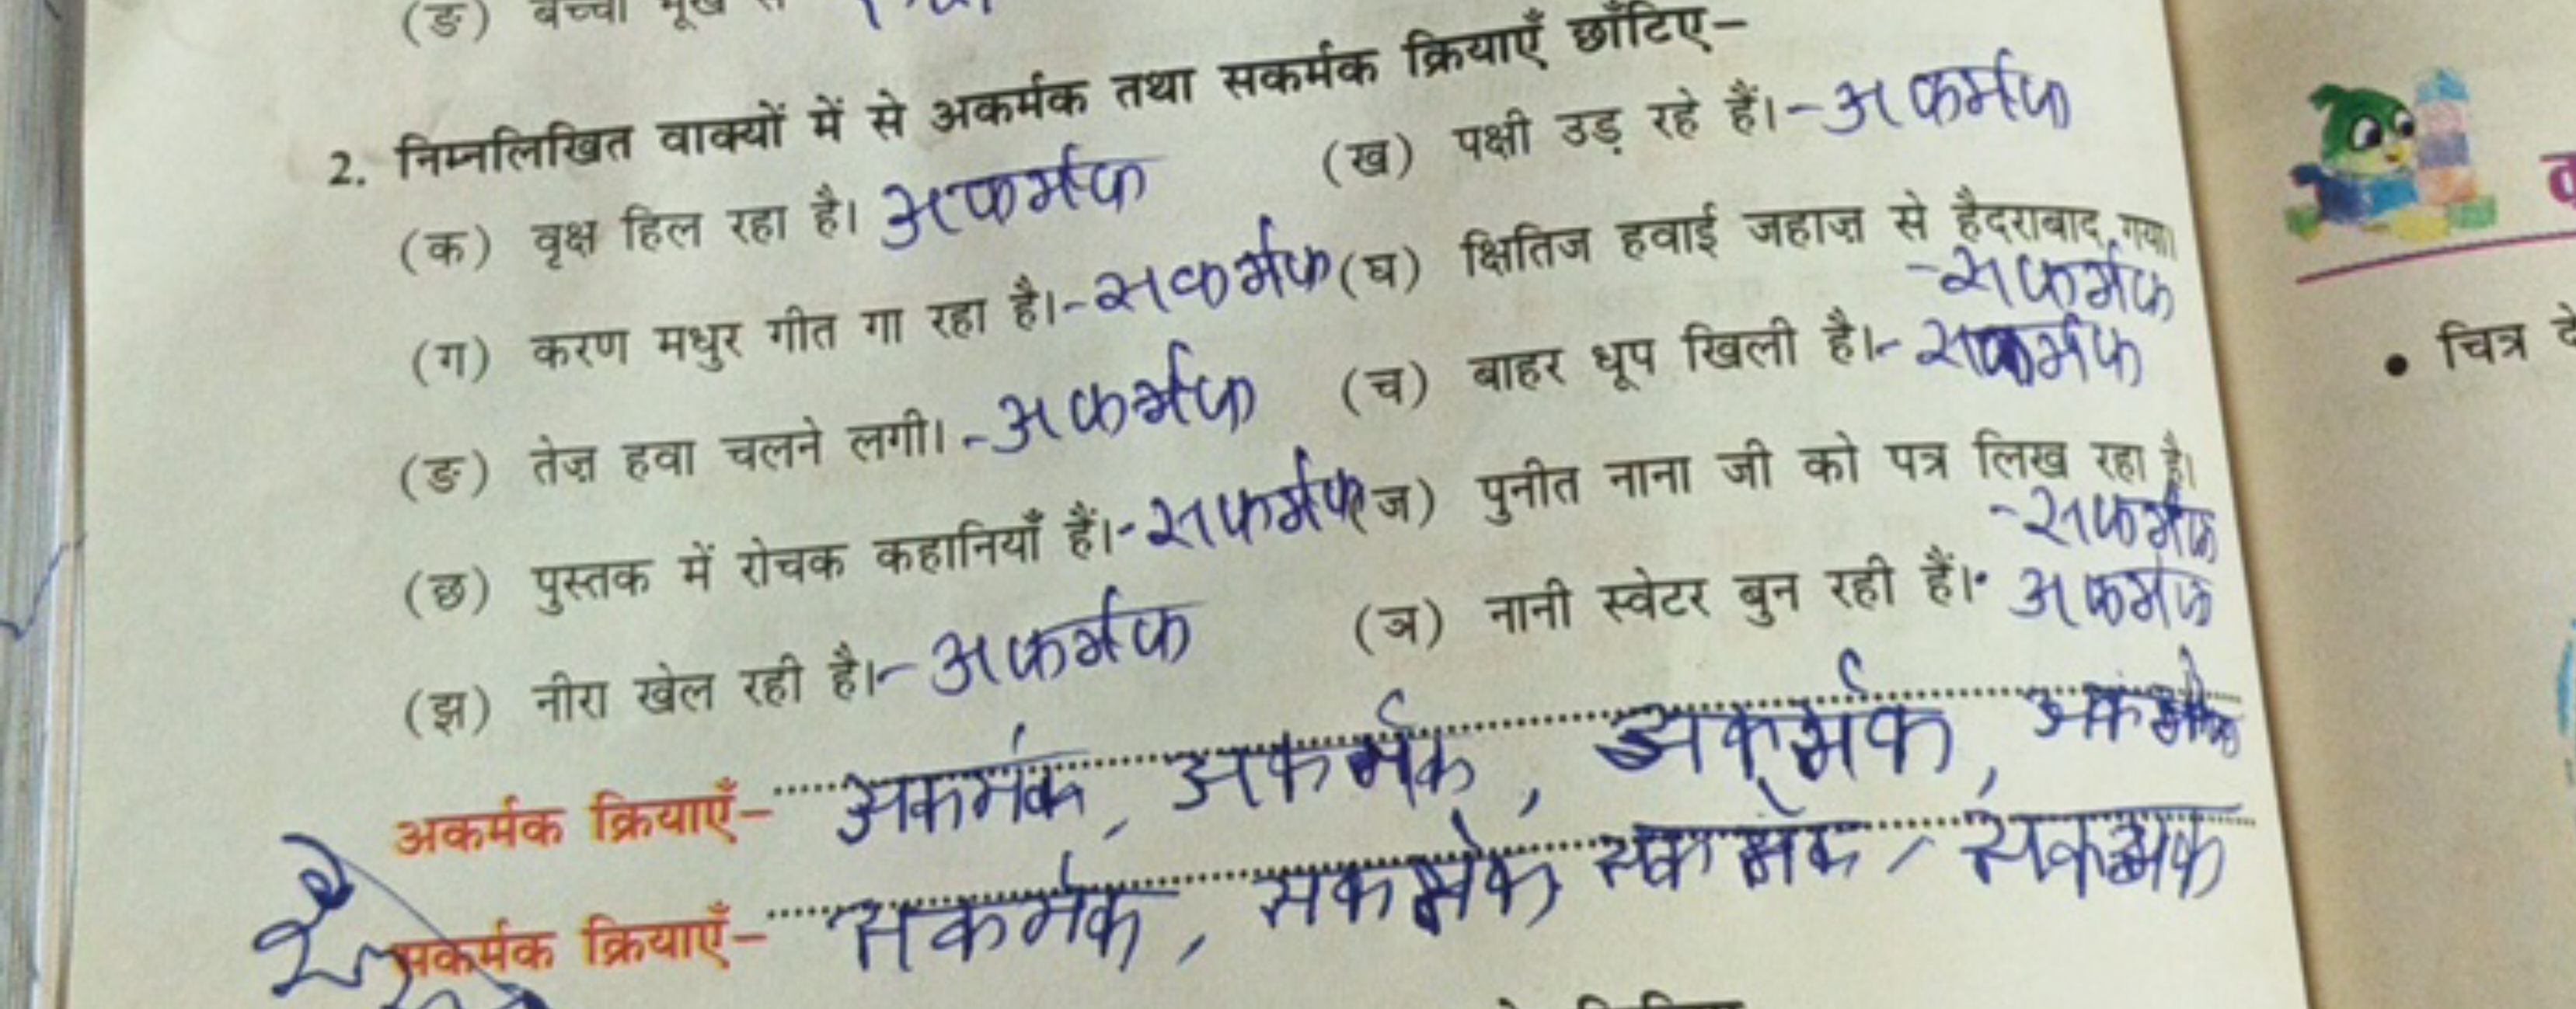 (ङ) बच्चा भूख से
2. निम्नलिखित वाक्यों में से अकर्मक तथा सकर्मक क्रियाएँ छाँटिए–
(क) वृक्ष हिल रहा है। अकर्मक (ख) पक्षी उड़ रहे हैं।-अकर्मक
(ग) करण मधुर गीत गा रहा है।-सकर्मक (घ) क्षितिज हवाई जहाज़ से हैदराबाद गया।
-सकर्मक
(ङ) तेज़ हवा चलने लगी।-अकर्मक (च) बाहर धूप खिली है।-सकर्मक
(छ) पुस्तक में रोचक कहानियाँ हैं।-सकर्मक (ज) पुनीत नाना जी को पत्र लिख रहा है।
-सकर्मक
(झ) नीरा खेल रही है।-अकर्मक (ञ) नानी स्वेटर बुन रही हैं।-अकर्मक
अकर्मक क्रियाएँ– अकर्मक, अकर्मक, अकर्मक, अकर्मक
सकर्मक क्रियाएँ– सकर्मक, सकर्मक, सकर्मक, सकर्मक
• चित्र